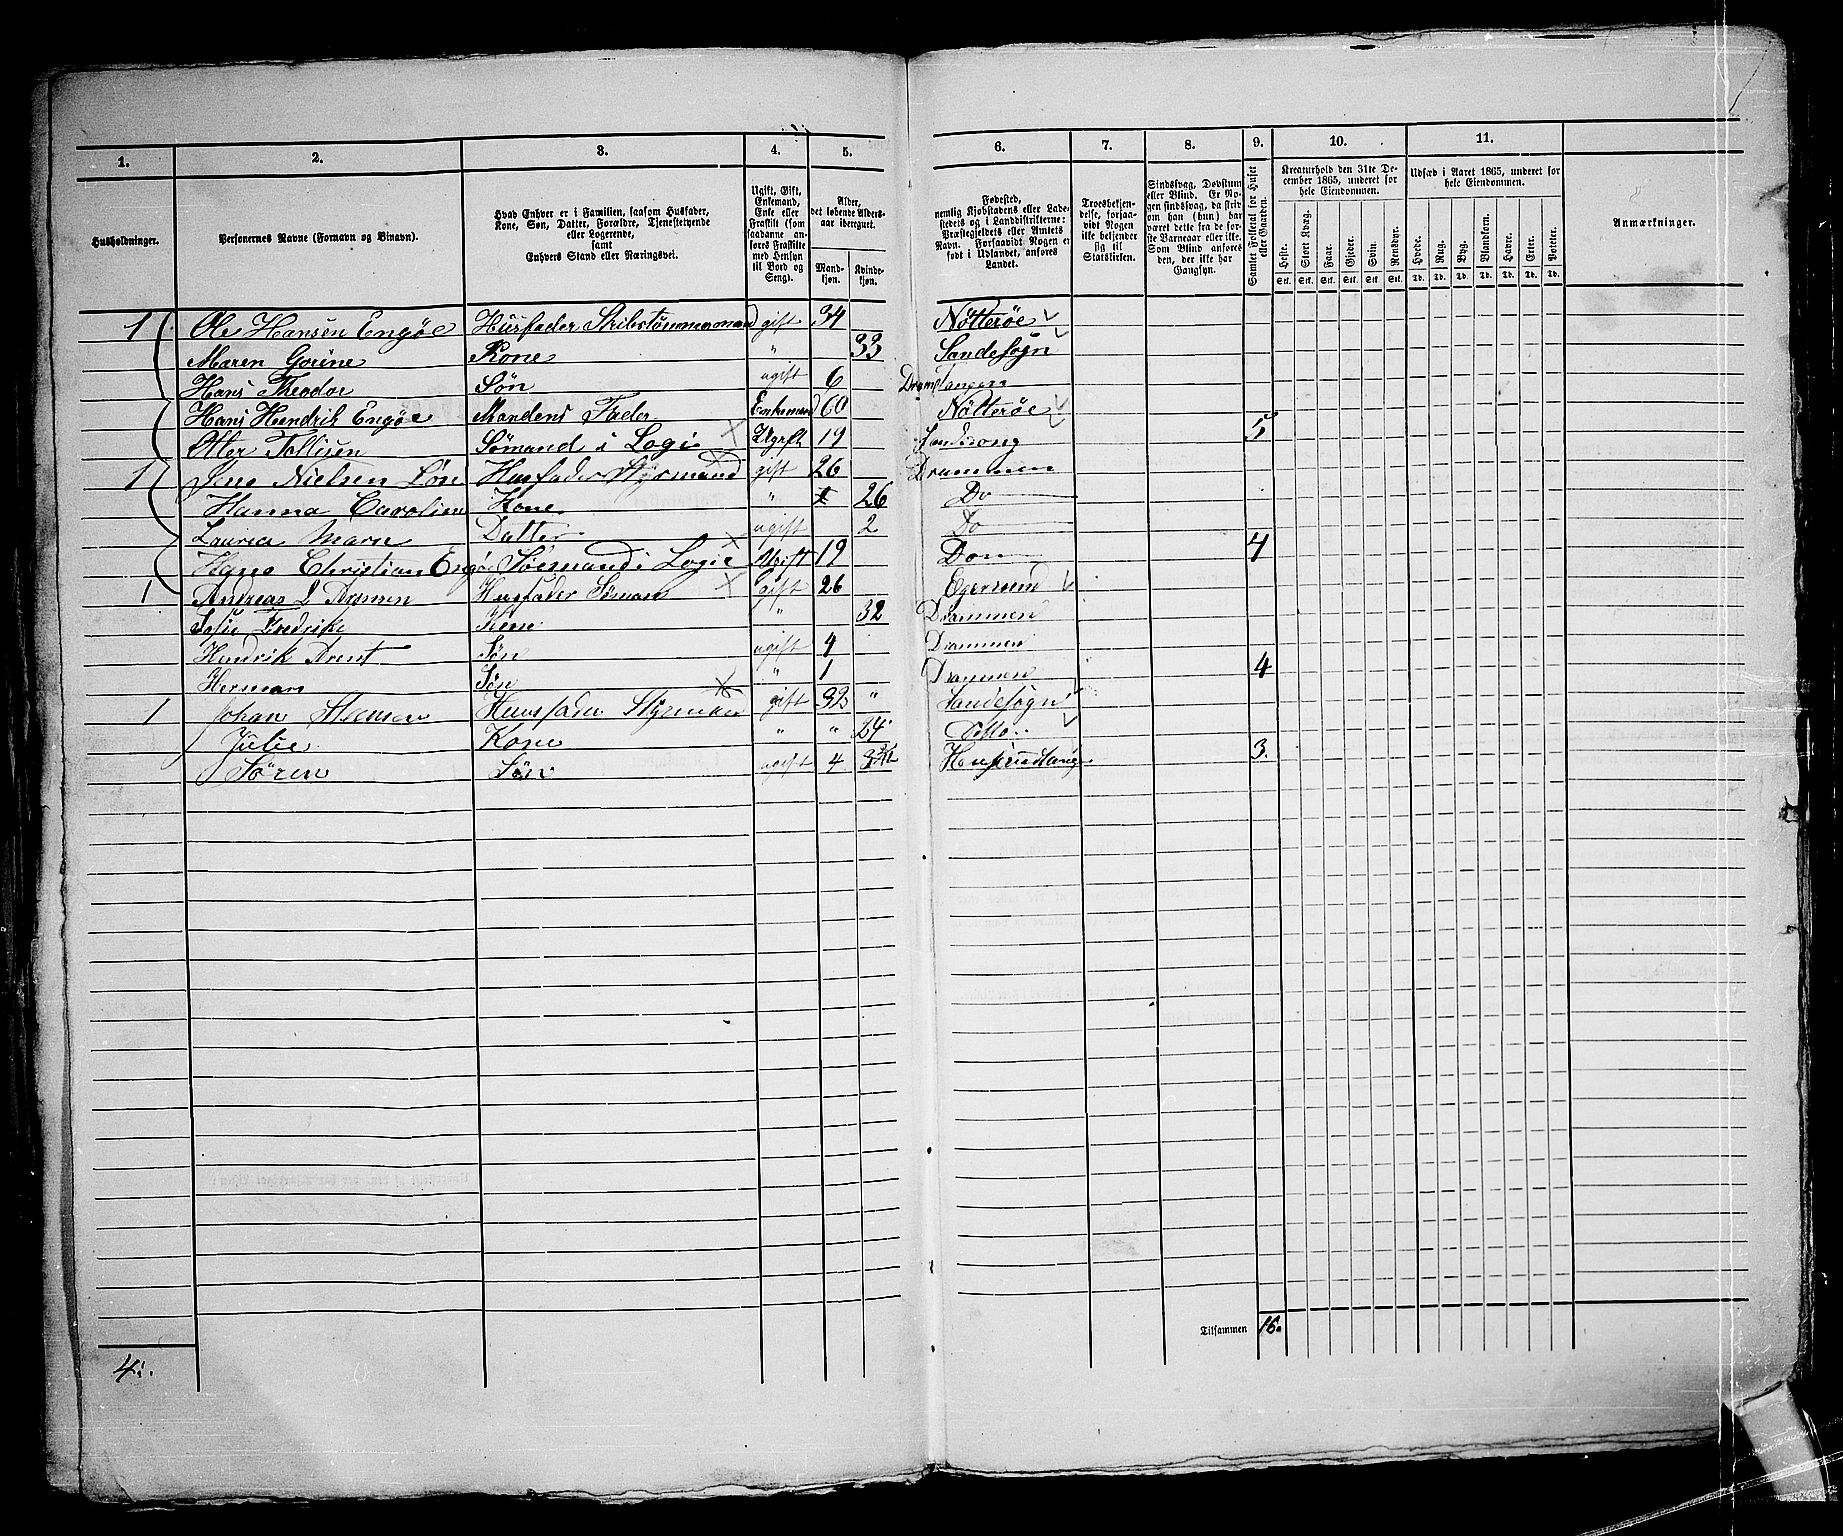 1. 2. 3. 4. 5. 6. 7. 8. 9. 10. 11.
Husholdninger. Personernes Navne (Fornavn og Tilnavn). Hvad Enhver er i Familien, saasom Husfader, Kone, Søn, Datter, Forældre, Tjenestetyende eller Logerende, samt Enhvers Stand eller Næringsvei. Ugift, Gift, Enkemand, Enke eller Fraskilt (som saadanne anføres Fraskilte med Hensyn til Bord og Seng). Alder, det løbende Aldersaar iberegnet. Mandkjøn. Kvindekjøn. Fødested, nemlig Kjøbstadens eller Ladestedets og i Landdistrikterne: Præstegjeldets eller Amtets Navn. Forsaavidt Nogen er født i Udlandet, anføres Landet. Troesbekjendelse, forsaavidt Nogen ikke bekjender sig til Statskirken. Sindssvag, Døvstum eller Blind. Er Nogen sindssvag, da skriv om han (hun) har været dette fra de første Barneaar eller ikke. Som Blind anføres den, der ikke har Gangsyn. Samlet Folketal for Huset eller Gaarden. Kreaturhold den 31te December 1865, underet for hele Eiendommen. Udsæd i Aaret 1865, underet for hele Eiendommen. Anmærkninger.
Heste. Stort Kvæg. Faar. Gjeder. Svin. Rensdyr. Hvede. Rug. Byg. Blandkorn. Havre. Erter. Poteter.
Stk. Stk. Stk. Stk. Stk. Stk. Td. Td. Td. Td. Td. Td. Td.
1 Ole Hansen Engøe Husfader Skibstømmermand gift 34 Nötterøe
Maren Gorine Kone " 33 Sandesogn
Hans Theodor Søn ugift 6 Dram Tangen
Hans Hendrik Engøe Mandens Fader Enkemand 60 Nötterøe
Tollisen Sömand i Logi Ugift 19 5
1 Jens Nielsen Husfader Styrmand gift 26 Drammen
Hanna Caroline Kone " 26 Do
Marie Datter ugift 2 Do
Christian Engø Søemand i Logie Ugift 19 Dom 4
1 Andreas Husfader Sømand Gift 26 Egersund
Sofie Fredrikke Kone " 32 Drammen
Hendrik Arent Søn ugift 4 Drammen
Herman Søn " 1 Drammen 4
1 Johan Husfader Styrmand gift 32 " Sandesogn
Julie Kone " " 24 Ditto
Søren Søn ugift 4 3.
Tilsammen 16.
4.